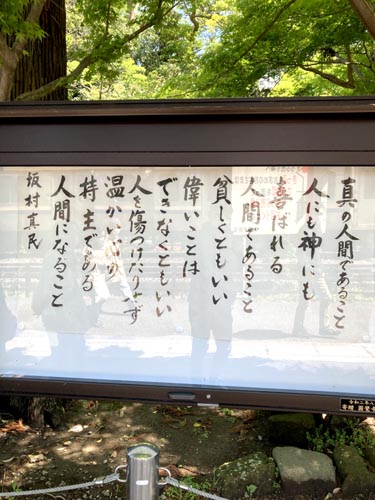 真の人間であること
人にも神にも
喜ばれる
人間であること
貧しくともいい
偉いことは
できなくともいい
人を傷つけたりせず
温かい心の
持主である
人間になること
坂村真民